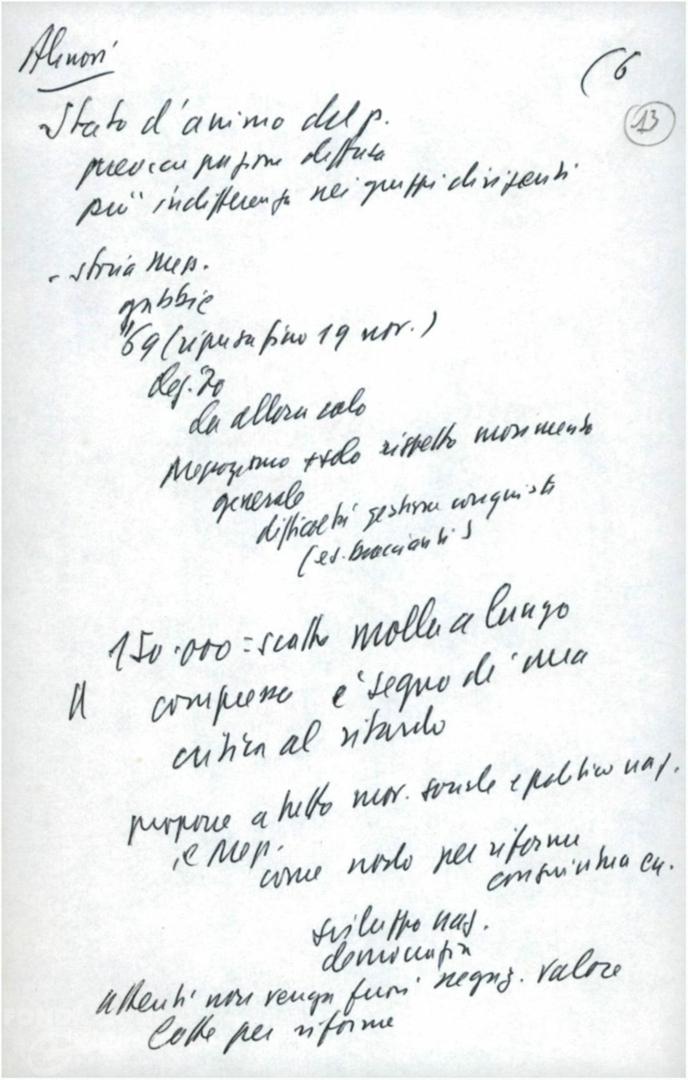 Alinovi
(6
13
Stato d'animo del p.
preoccupazione diffusa
più indifferenza nei gruppi dirigenti
- storia Mep.
gabbie
'69 (ripresa fino 19 nov.)
Reg. '70
da allora calo
Mezzogiorno solo rispetto movimento
generale
difficoltà gestione conquiste
(es. braccianti)
150.000 = scatto molla a lungo
compressa e' segno di una
critica al ritardo
propone a tutto mov. sociale e politico naz.
il Mezz. come nodo per riforme
sviluppo naz.
democrazia
attenti non venga fuori negaz. valore
lotte per riforme